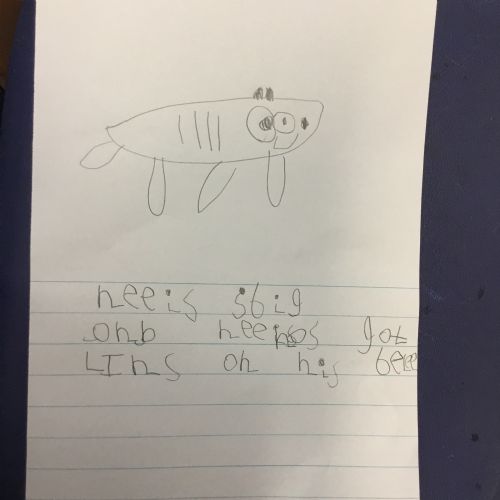 heeis sbig
onb heehos got
LIns on his beee